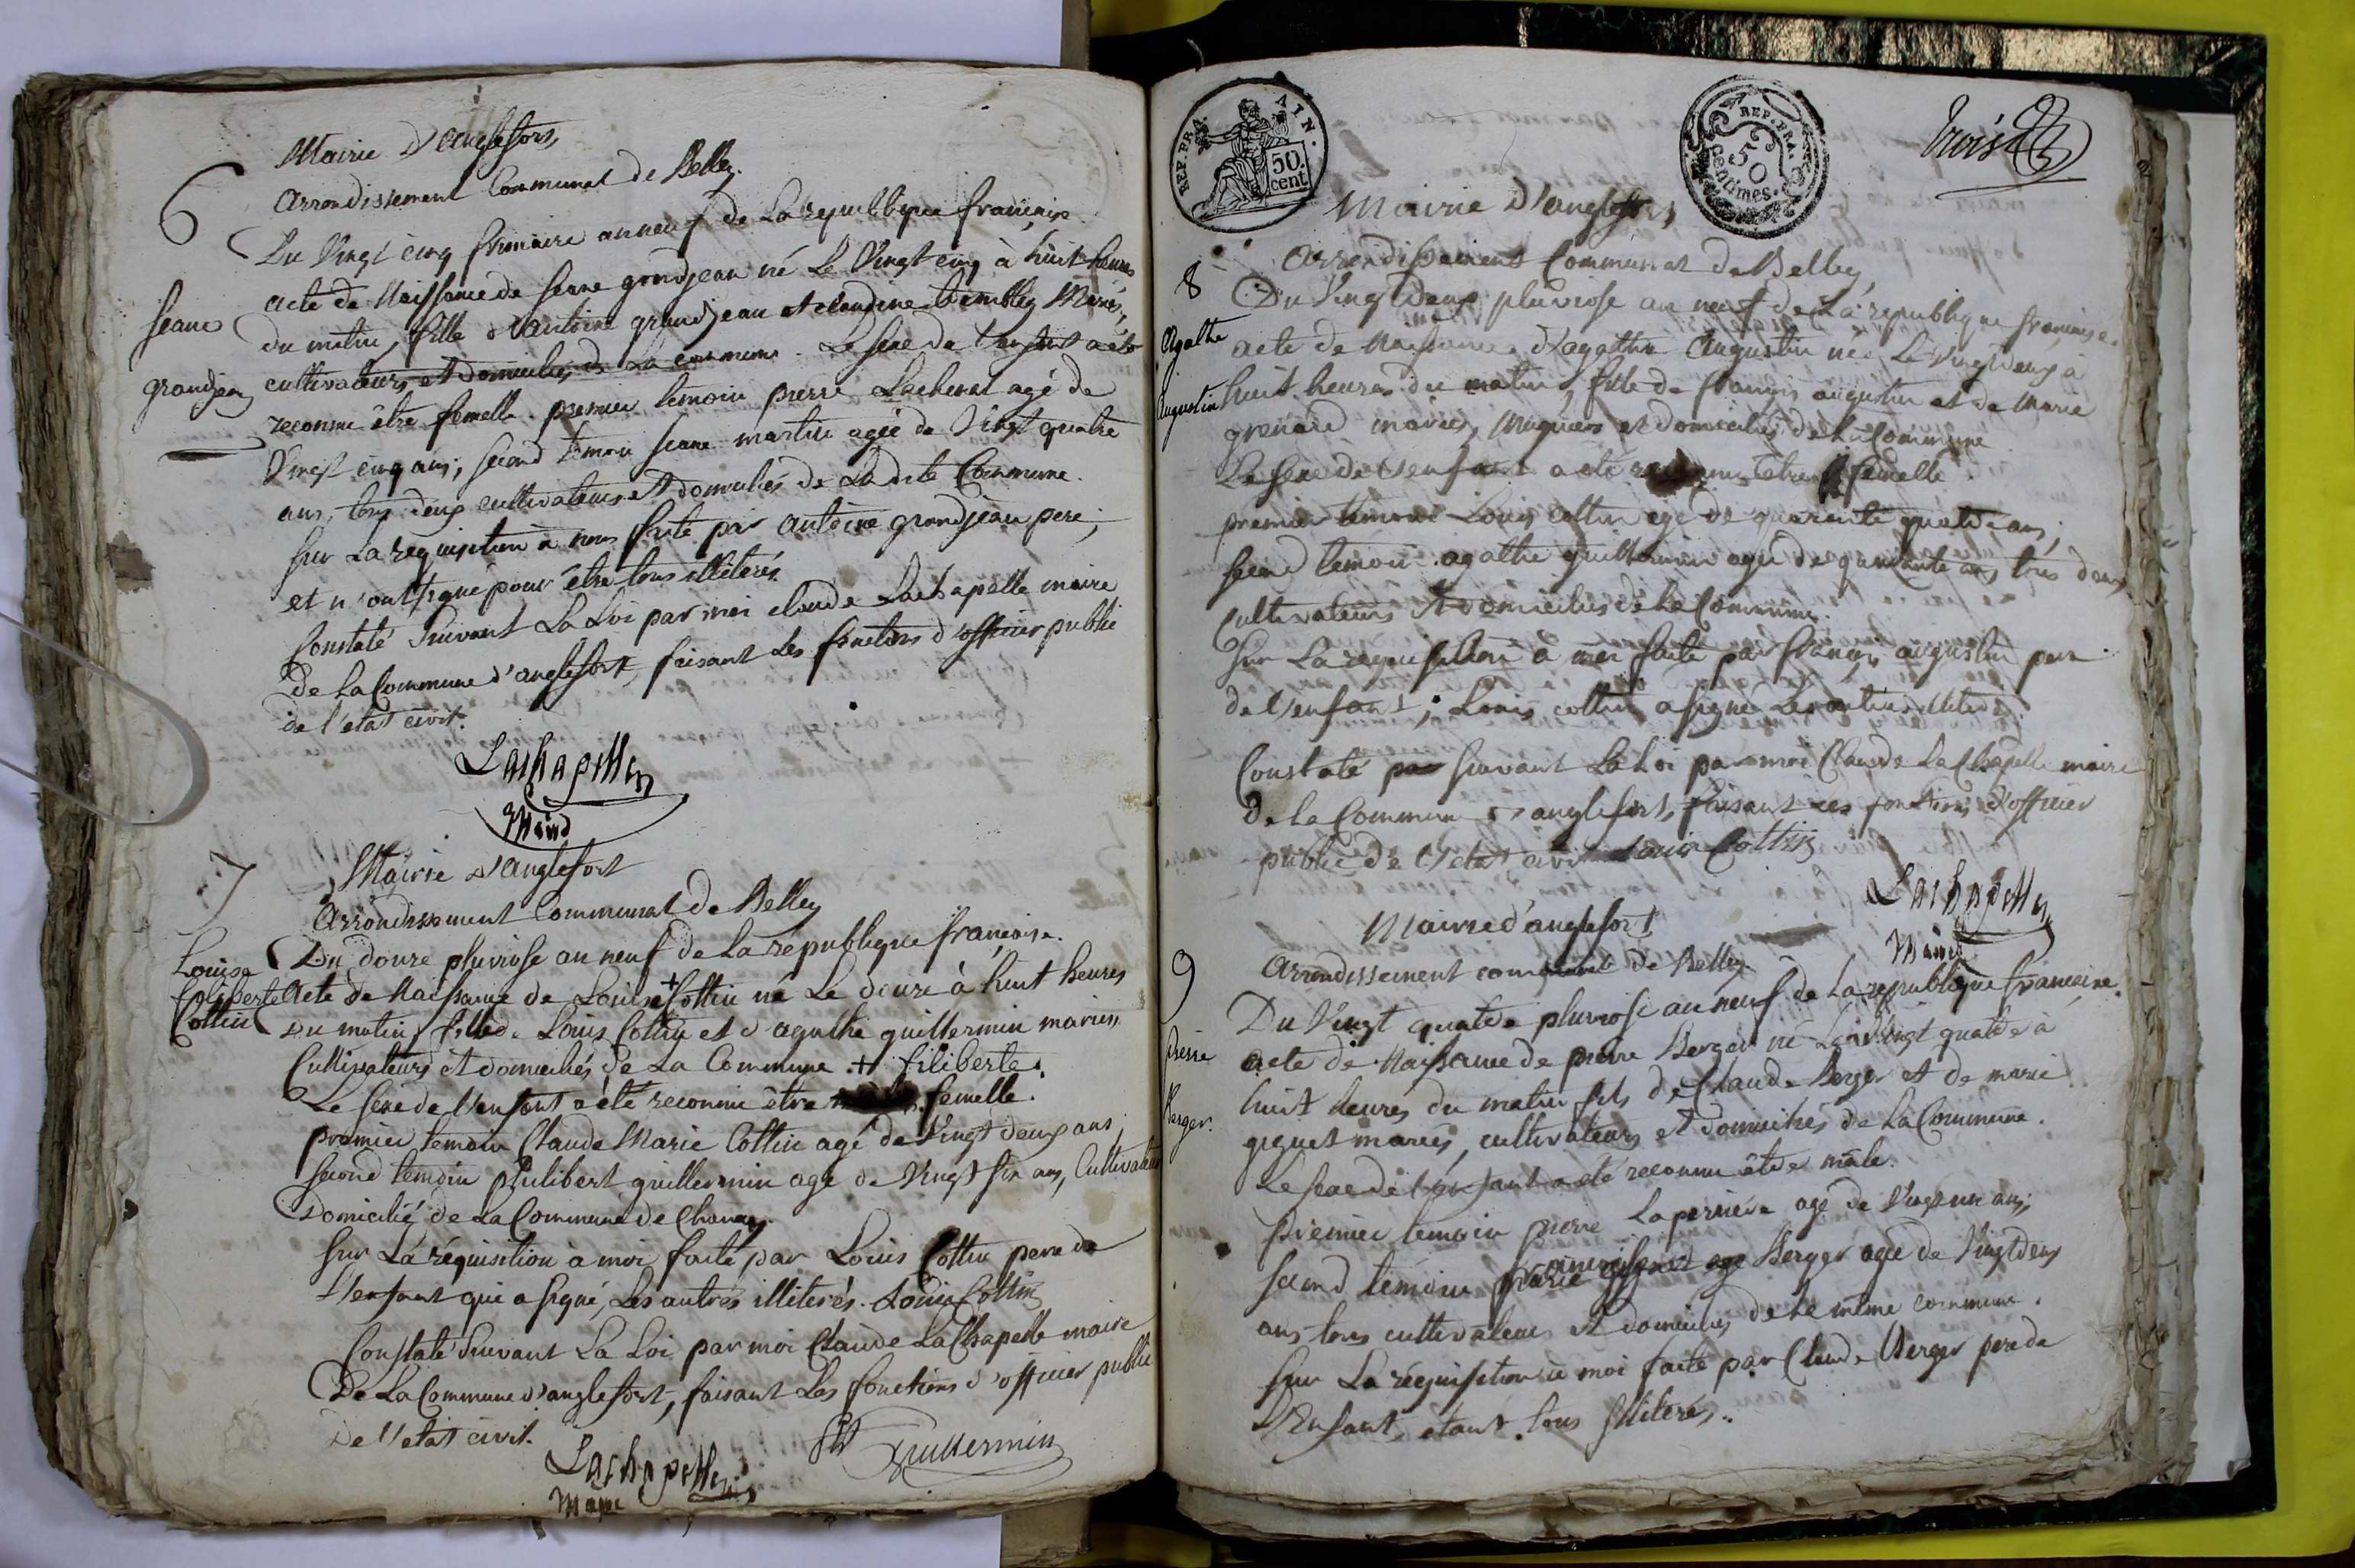 Mairie d'anglefort
arrondissement Communal de Belley.
6
Du Vingt cinq frimaire an neuf de La republique française
acte de Naissance de Jeane grandjean né Le Vingt cinq à huit heures
Jeane
grandjean
du matin, fille d'antoine grandjean et claudine Mariés,
cultivateurs et domiciliés de La commune. Le sexe de l'enfant a été
reconnu être femelle. premier temoin pierre Lacheval agé de
Vingt cinq ans, second temoin Jeane martin agée de Vingt quatre
ans, tous deux cultivateurs et domiciliés de La dite Commune.
Sur La requisition à nous faite par antoine grandjean pere,
et n'ont signé pour être tous illiterés.
Constaté Suivant La Loi par moi claude Lachapelle maire
de La Commune d'anglefort, faisant Les fonctions d'officier public
de l'etat civil.
Lachapelle
Maire
7
Mairie d'anglefort
arrondissement Communal de Belley
Du douze pluviose an neuf de La republique française.
Louise
filiberte
Cottin
Acte de Naissance de Louise + Cottin né Le douze à huit heures
du matin, fille de Louis Cottin et d'agathe guillermin mariés
Cultivateurs et domiciliés de La Commune. + filiberte.
Le sexe de l'enfant a été reconnu être femelle.
premier temoin Claude Marie Cottin agé de Vingt deux ans;
second temoin philibert guillermin agé de Vingt six ans, Cultivateurs
Domicilié de La Commune de Chanay.
Sur La réquisition à moi faite par Louis Cottin pere de
l'enfant qui a signé, Les autres illiterés. Louis Cottin
Constaté Suivant La Loi par moi Claude LaChapelle maire
De La Commune d'anglefort, faisant Les fonctions d'officier public
de l'etat civil.
Lachapelle
Maire
Pht Guillermin
REP. FRA. AIN.
50.
cent.
REP. FRA.
50
centimes.
trois
Mairie d'anglefort
arrondissement Communal de Belley
8
Du Vingt deux pluviose an neuf de La republique francaise.
agathe
augustin
acte de Naissance d'agathe augustin née Le Vingt deux à
huit heures du matin, fille de françois augustin et de Marie
grenard mariés, et domiciliés de La Commune
Le sexe de l'enfant a été reconnu être femelle
premier temoin Louis Cottin agé de quarante quatre ans;
second temoin agathe guillermin agée de quarante ans, tous deux
Cultivateurs et domiciliés de La Commune.
Sur La requisition à moi faite par françois augustin pere
de l'enfant; Louis cottin a signé Les autres illiterés.
Constaté par suivant La Loi par moi Claude LaChapelle maire
de La Commune d'anglefort, faisant Les fonctions d'officier
public de l'etat civil Louis Cottin
Lachapelle
Maire
Mairie d'anglefort
9
arrondissement communal de Belley
Du Vingt quatre pluviose an neuf de La republique francaise.
pierre
Berger.
acte de Naissance de pierre Berger né Le Vingt quatre à
huit heures du matin fils de Claude Berger et de marie
giguet mariés, cultivateurs et domiciliés de La Commune.
Le sexe de l'enfant a été reconnu être mâle.
premier temoin pierre Laperriere agé de Vingt un ans;
second temoin Berger agée de Vingt deux
ans tous cultivateurs et domiciliés de La même commune.
Sur La réquisition à moi faite par Claude Berger pere de
l'Enfant, étant tous illiterés.